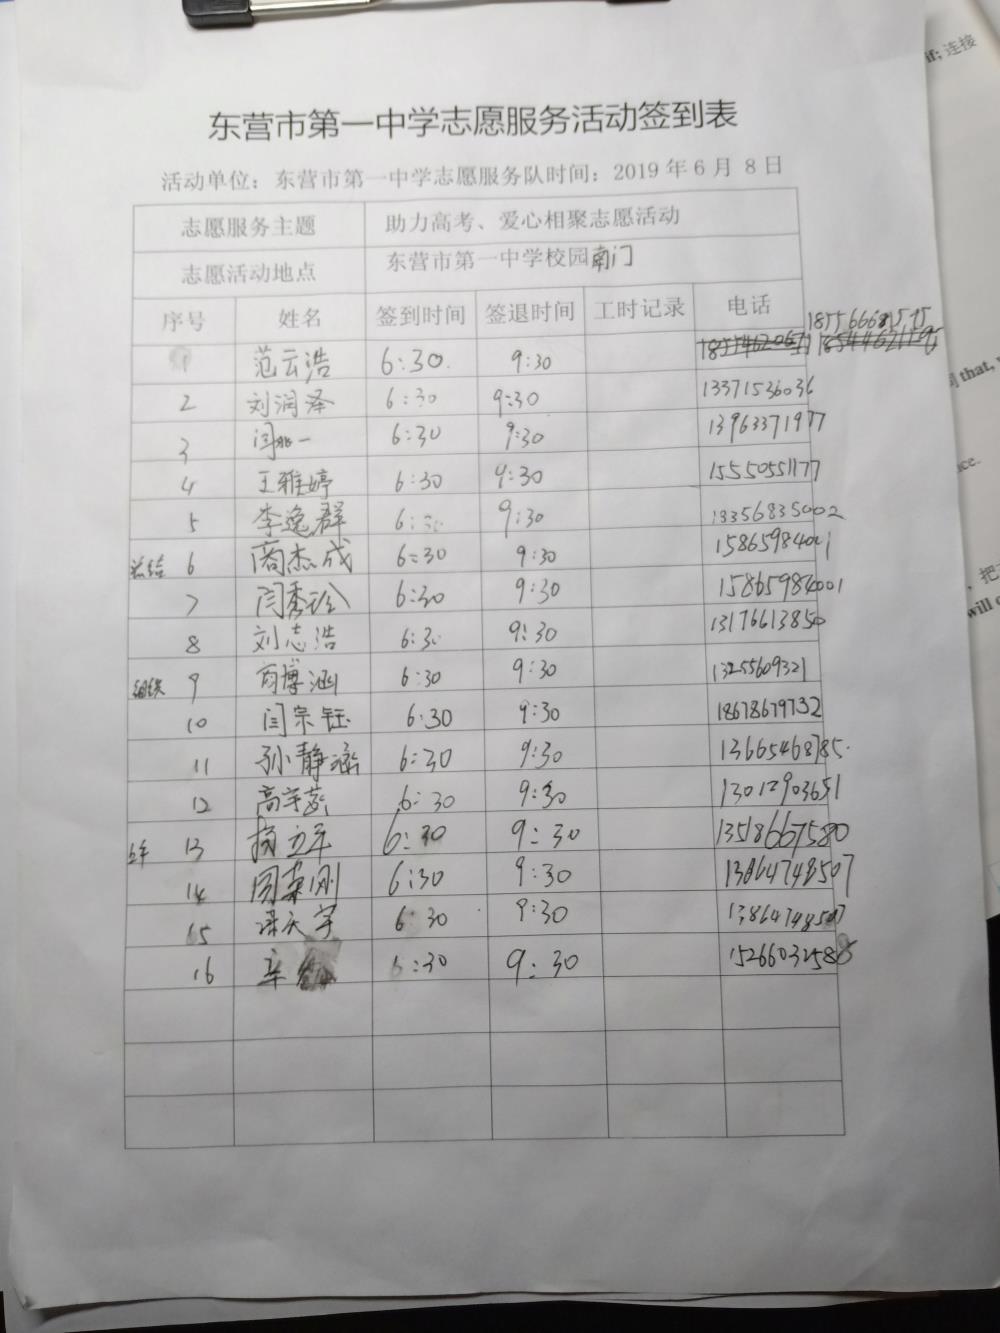 if; 连接
东营市第一中学志愿服务活动签到表
活动单位：东营市第一中学志愿服务队时间：2019 年 6 月 8 日
志愿服务主题 助力高考、爱心相聚志愿活动
志愿活动地点 东营市第一中学校园南门
序号 姓名 签到时间 签退时间 工时记录 电话
1 范云浩 6:30 9:30
2 刘润泽 6:30 9:30 13371536036
that,
3 闫兆一 6:30 9:30 13963371977
4 王雅婷 6:30 9:30 15550551177
5 李逸群 6:30 9:30 13356835002
总结 6 商杰成 6:30 9:30 15865984001
7 闫秀玲 6:30 9:30 15865984001
，把
will
8 刘志浩 6:30 9:30 13176613850
组织 9 商博涵 6:30 9:30 13255609321
10 闫宗钰 6:30 9:30 18678679732
11 孙静涵 6:30 9:30 13665468785
12 高宇 6:30 9:30 13012903651
13 立军 6:30 9:30 13518667580
14 周荣刚 6:30 9:30 13864748507
15 天宇 6:30 9:30 13864748507
16 6:30 9:30